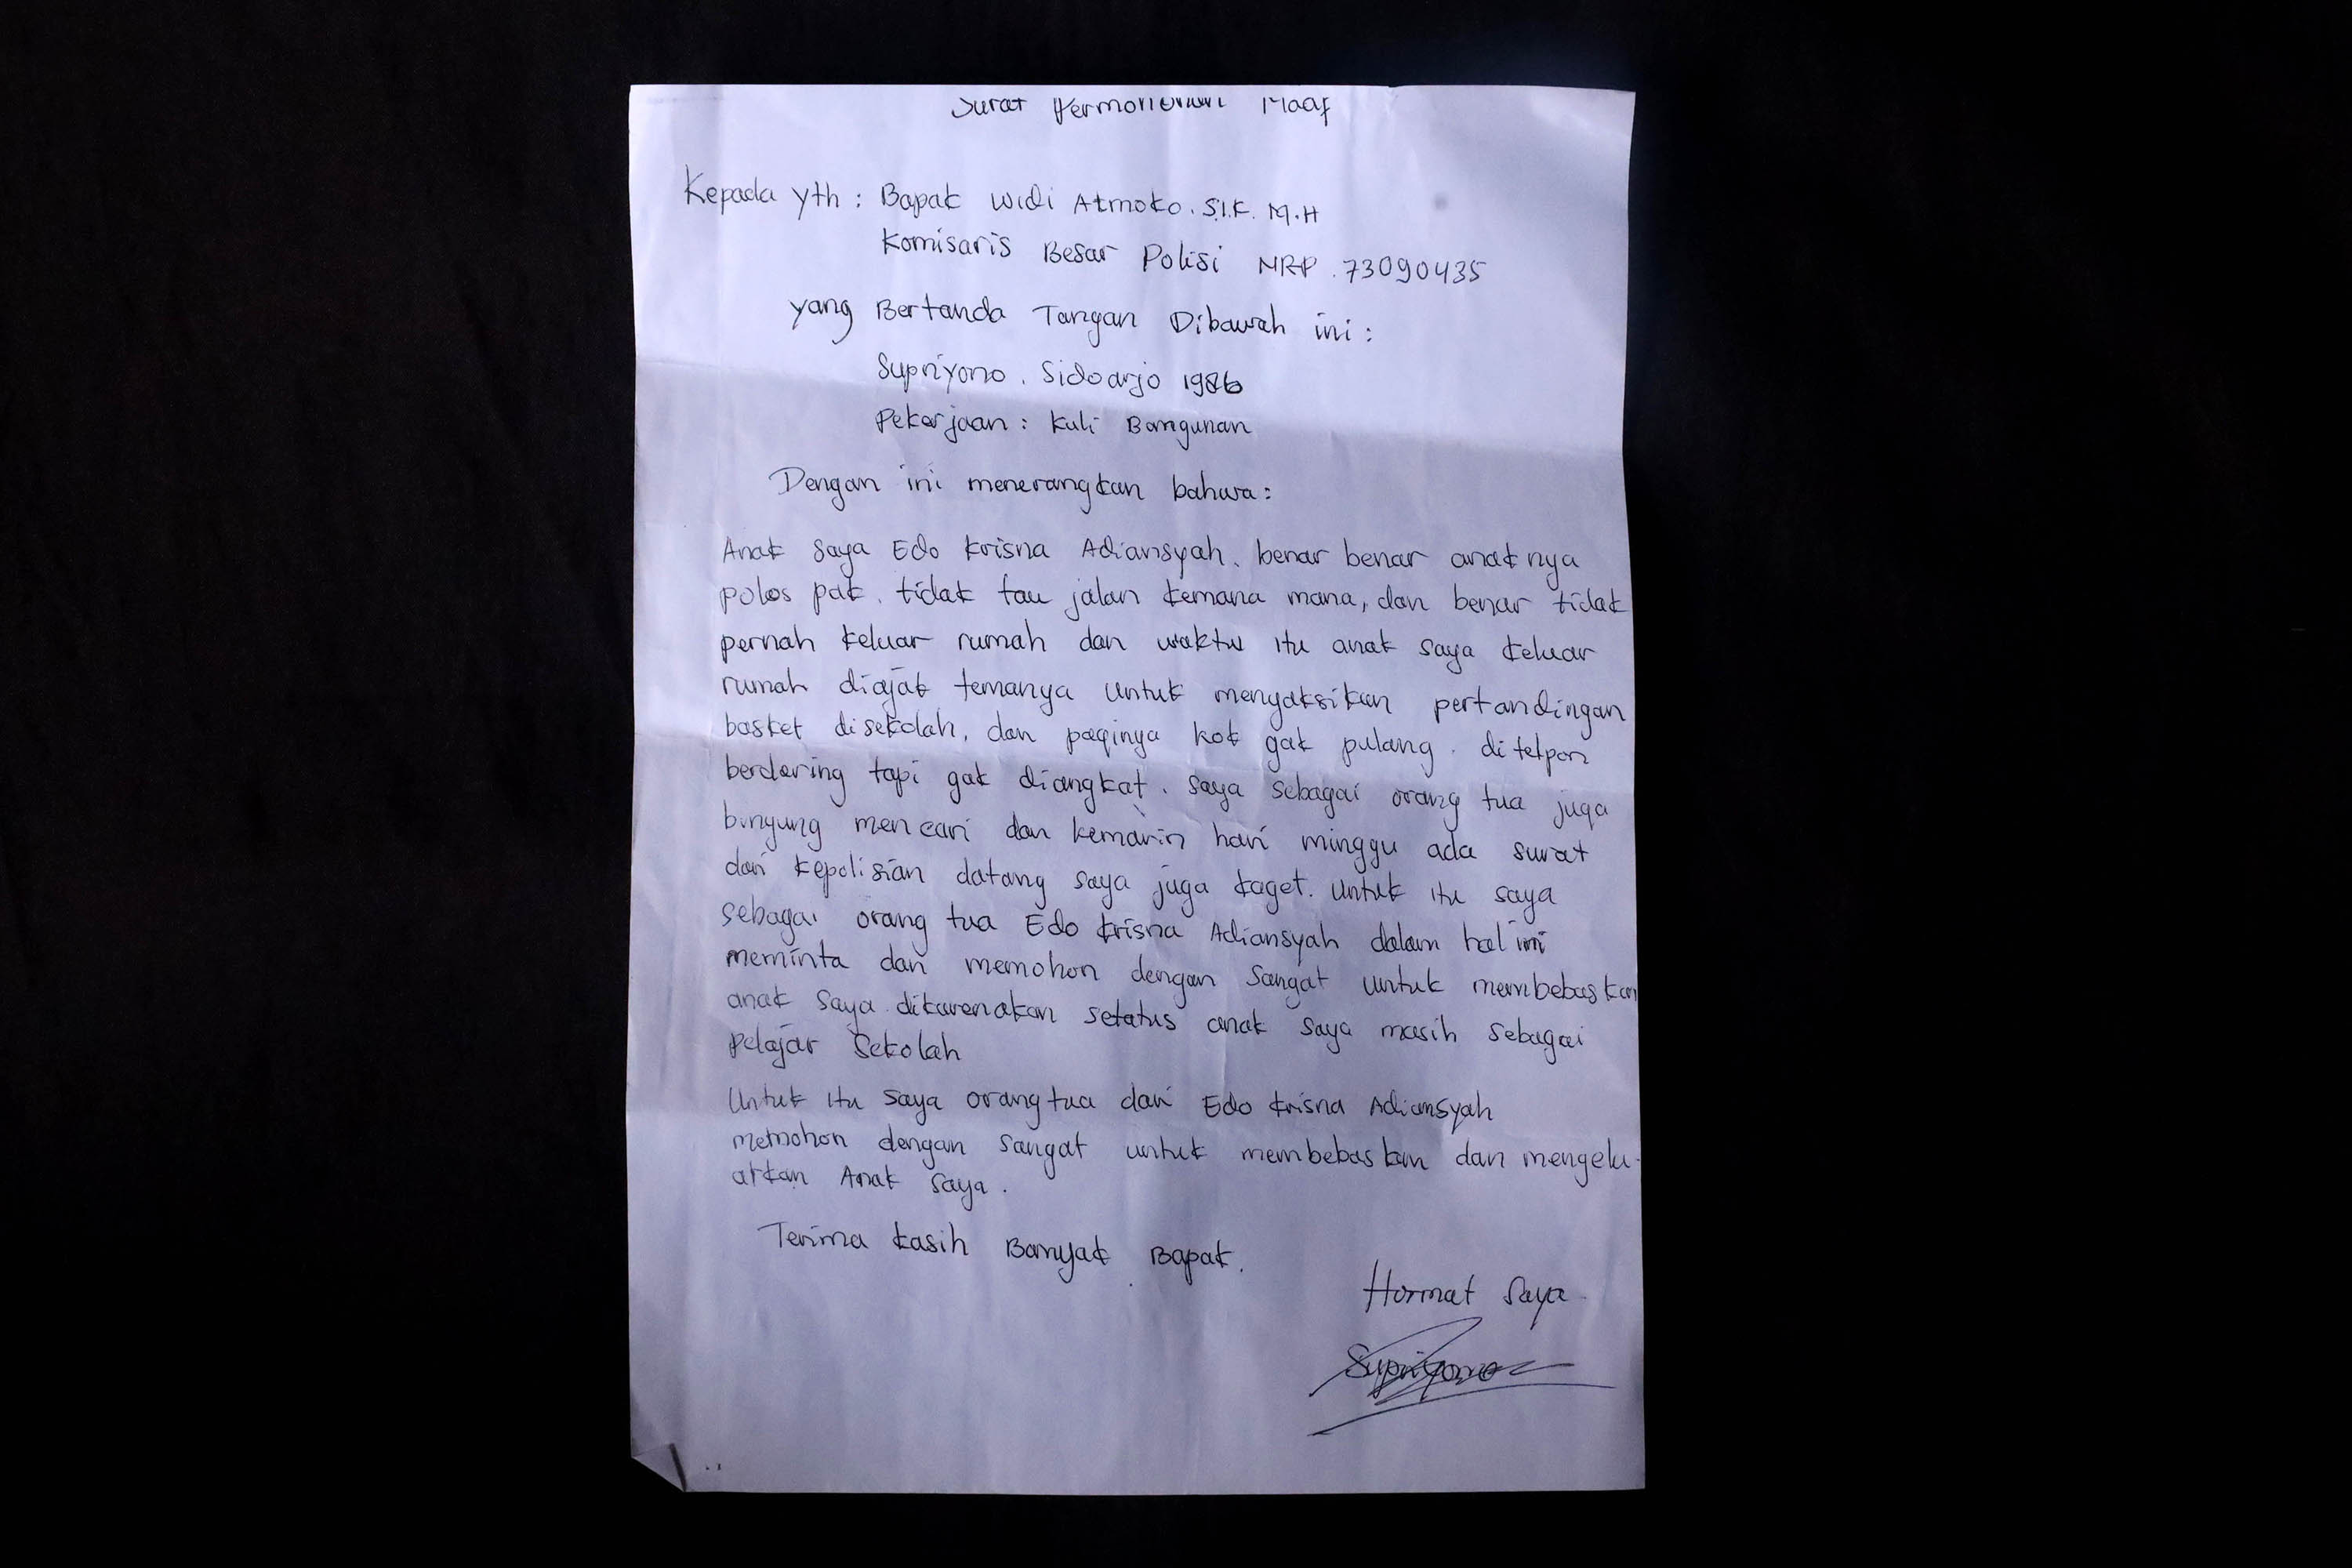 Surat Permohonan Maaf
Kepada yth : Bapak Widi Atmoko. S.I.K. M.H
Komisaris Besar Polisi NRP. 73090435
yang Bertanda Tangan Dibawah ini :
Supriyono. Sidoarjo 1986
Pekerjaan : Kuli Bangunan
Dengan ini menerangkan bahwa :
Anak saya Edo Krisna Adiansyah. benar benar anaknya
polos pak. tidak tau jalan kemana mana, dan benar tidak
pernah keluar rumah dan waktu itu anak saya keluar
rumah diajak temanya untuk menyaksikan pertandingan
basket disekolah, dan paginya kok gak pulang. di telpon
berdering tapi gak diangkat. saya sebagai orang tua juga
bingung mencari dan kemarin hari minggu ada surat
dari kepolisian datang saya juga kaget. untuk itu saya
sebagai orang tua Edo Krisna Adiansyah dalam hal ini
meminta dan memohon dengan sangat untuk membebaskan
anak saya dikarenakan setatus anak saya masih sebagai
pelajar sekolah
Untuk itu saya orang tua dari Edo Krisna Adiansyah
memohon dengan sangat untuk membebaskan dan mengelu-
arkan Anak saya.
Terima kasih Banyak Bapak.
Hormat Saya
Supriyono